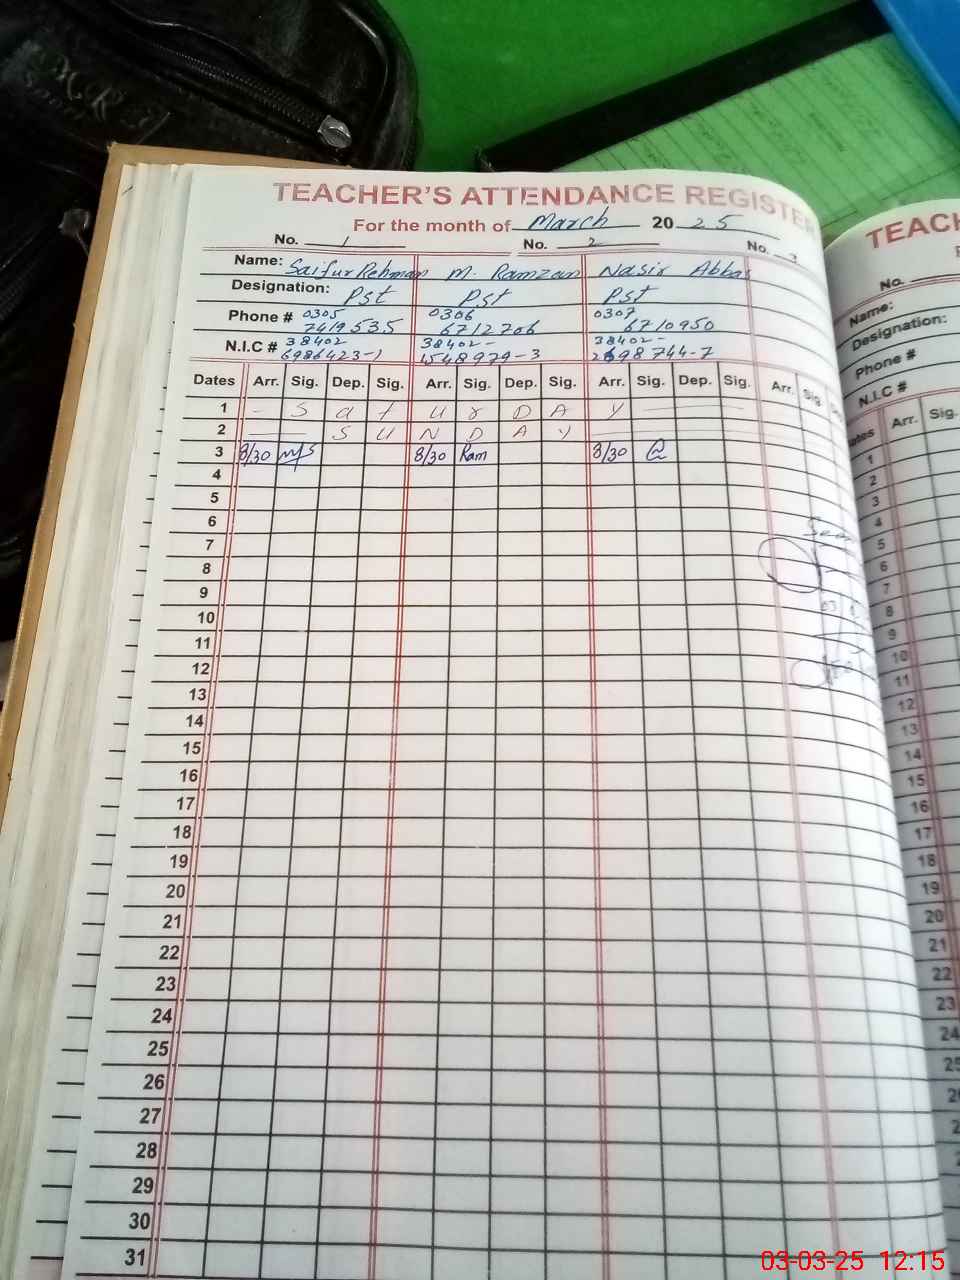 TEACHER'S ATTENDANCE REGISTER
For the month of March 2025
No. 1 No. 2 No. 3
Name: Saifur Rehman M. Ramzan Nasir Abbas
Designation: Pst Pst Pst
Phone # 0305 7419535 0306 6712706 0307 6710950
N.I.C # 38402 6986423-1 38402- 1548979-3 38402- 2698744-7
Dates Arr. Sig. Dep. Sig. Arr. Sig. Dep. Sig. Arr. Sig. Dep. Sig. Arr. Sig
1 - S a t u r D A y
2 S U N D A y
3 8/30 8/30 Ram 8/30
4
5
6
7
8
9
10
11
12
13
14
15
16
17
18
19
20
21
22
23
24
25
26
27
28
29
30
31
TEACH
No.
Name:
Designation:
Phone #
N.I.C #
Arr. Sig.
1
2
3
4
5
6
7
8
9
10
11
12
13
14
15
16
17
18
19
20
21
22
23
24
25
03-03-25 12:15